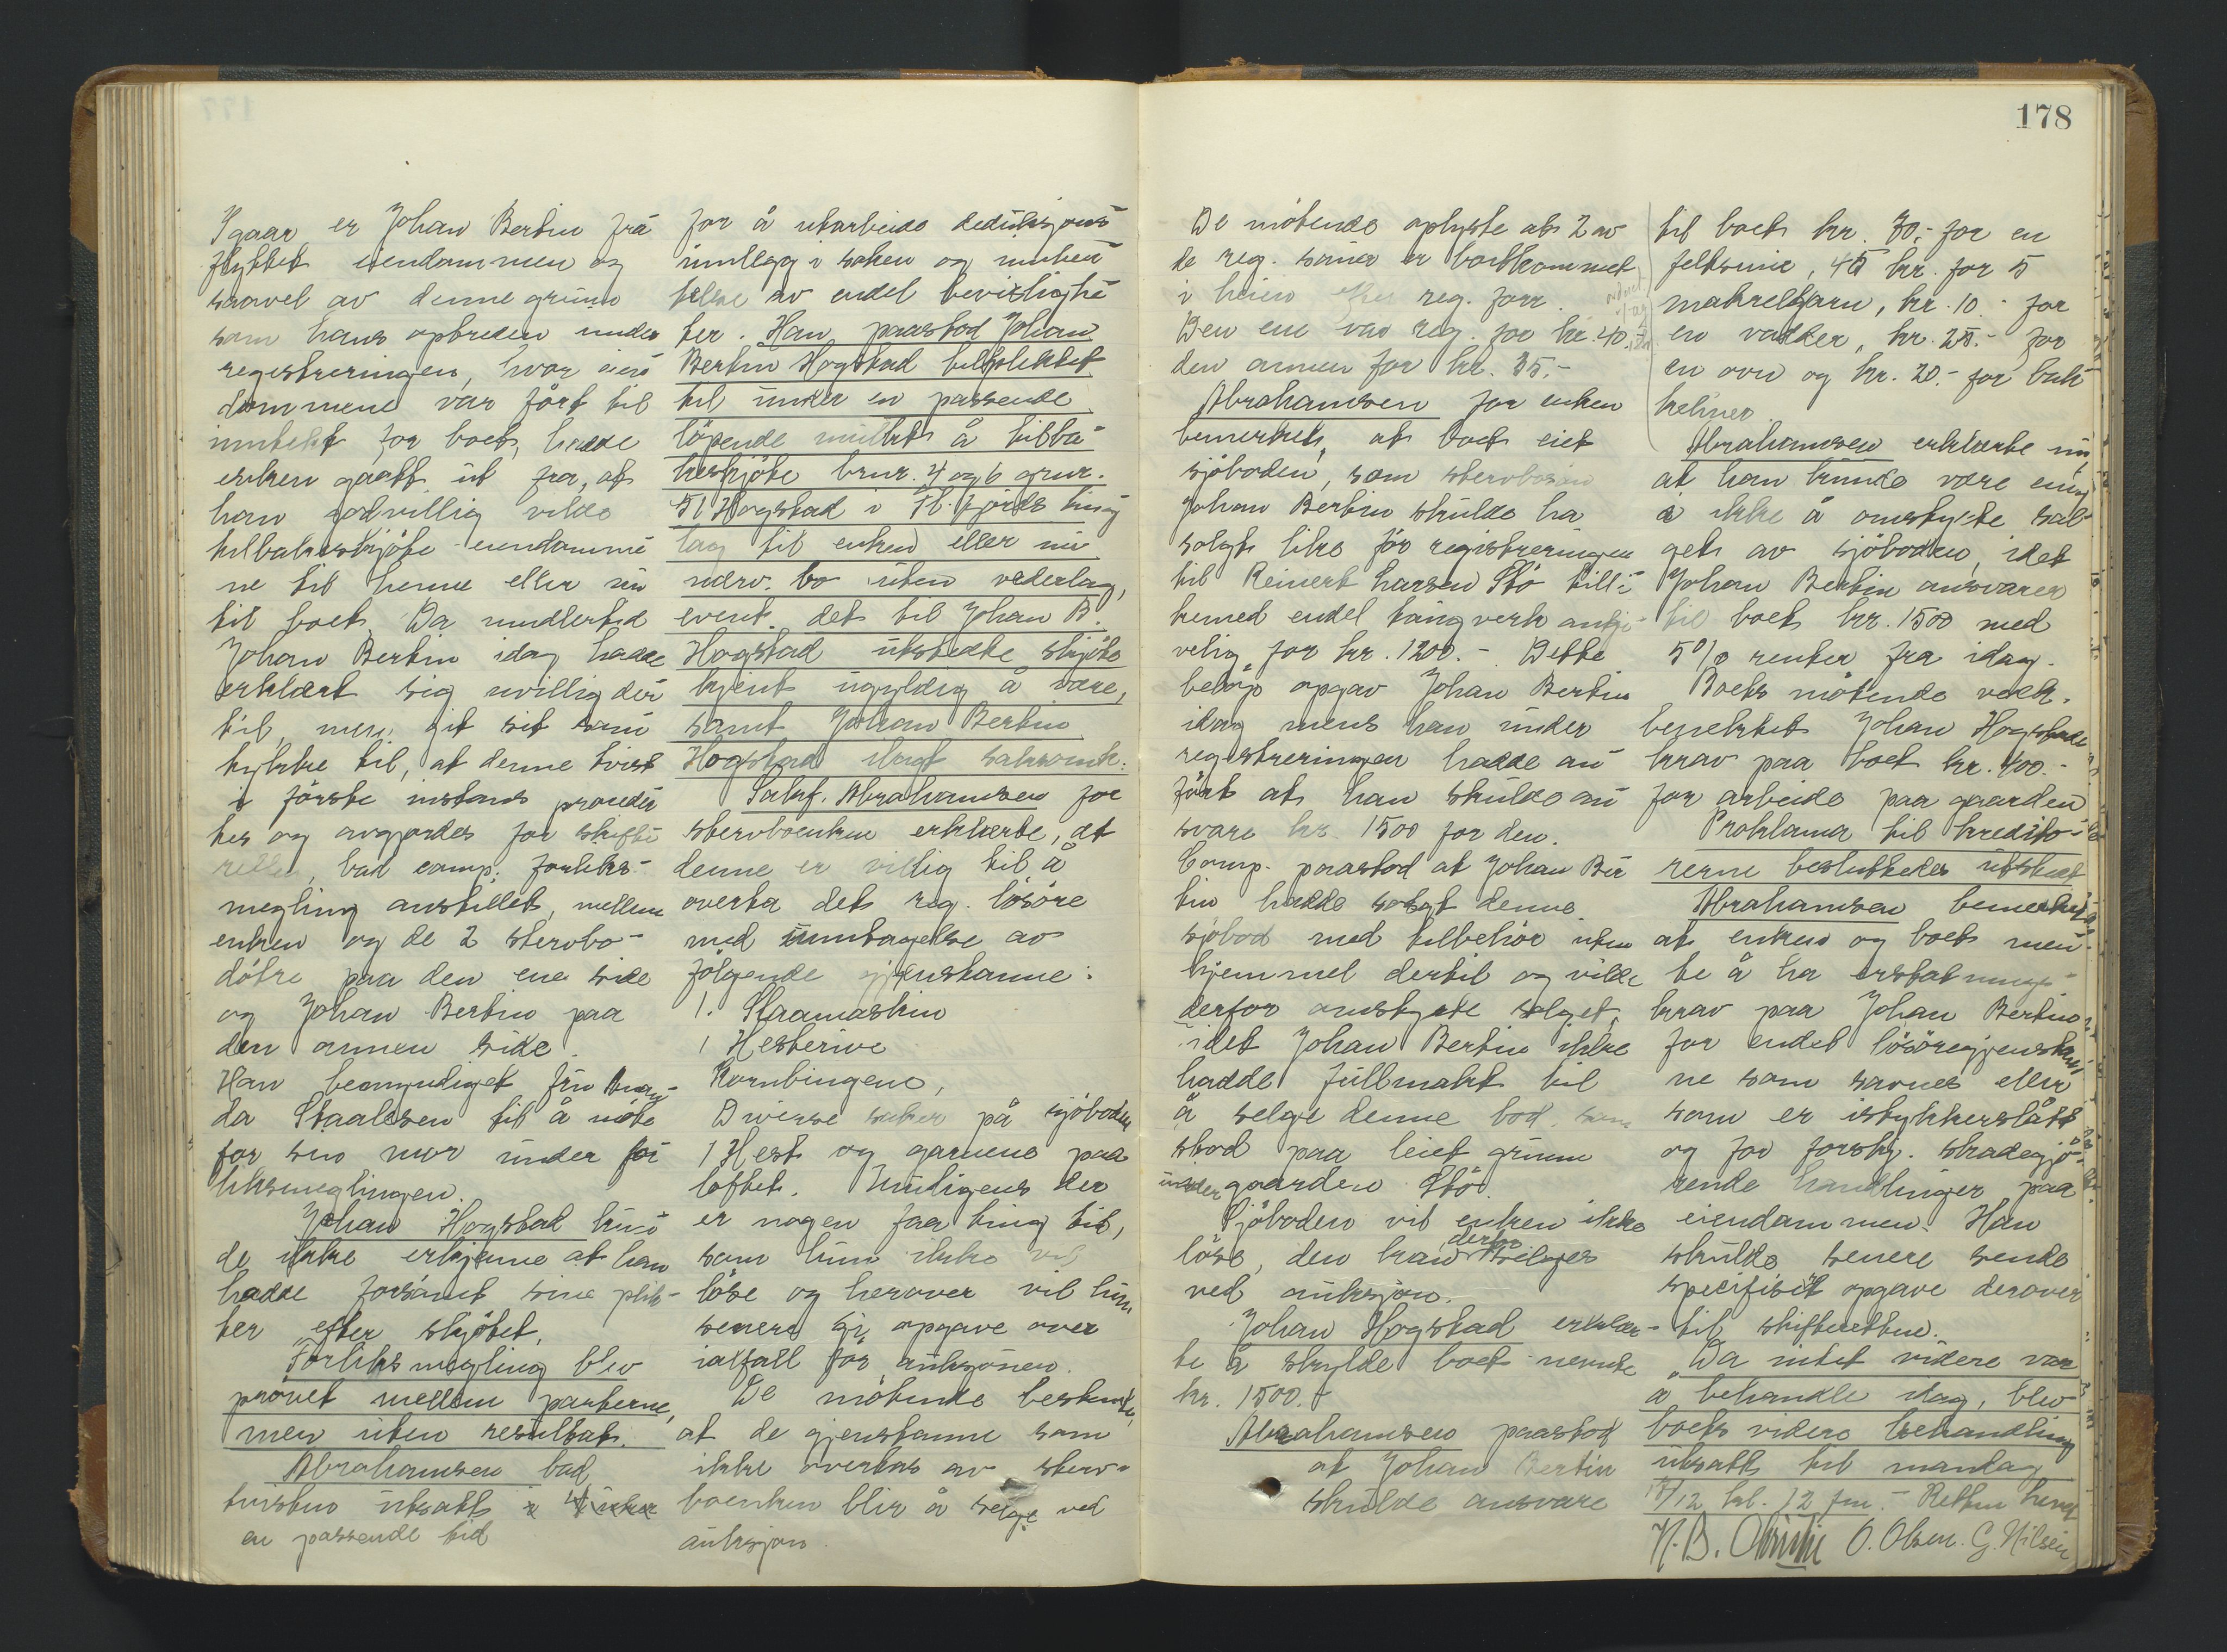 Igaar er Johan Bertin fra
flyttet eiendommen og
saavel av denne grunn
som hans optreden under
registreringen, hvor eien
dommene var ført til
inntekt for boet, hadde
enken gaatt ut fra, at
han godvillig vilde
tilbakeskjøte eiendomme
ne til henne eller nu
til boet. Da imidlertid
Johan Bertin idag hadde
erklært sig uvillig der
til, men git sit sam
tykke til, at denne tvist
i første instans procede
res og avgjordes for skifte
retten, bad comp. forliks-
megling anstillet, mellem
enken og de 2 stervbo-
døtre paa den ene side
og Johan Bertin paa
den annen side.
Han bemyndiget fru Aman-
da Staalesen til å møte
for sin mor under for
liksmeglingen.
Johan Hogstad kun
de ikke erkjenne at han
hadde forsømt sine plik-
ter efter skjøtet.
Forliksmegling blev
prøvet mellem parterne,
men uten resultat.
Abrahamsen bad
tvisten utsatt i 4 uker
en passende tid
for å utarbeide deduksjons
innlegg i saken og innhen
telse av endel bevislighe
ter. Han paastod Johan
Bertin Hogstad tilpliktet
til under en passende
løpende mulkt å tilba
keskjøte brnr. 4 og 6 gnr.
51 Hogstad i Fl.fjords ting
lag til enken eller nu
nærv. bo uten vederlag,
event. det til Johan B.
Hogstad utstedte skjøte
kjent ugyldig å være,
samt Johan Bertin
Hogstad ilagt saksomk.
Sakf. Abrahamsen for
stervboenken erklærte, at
denne er villig til å
overta det reg. løsøre
med unntagelse av
følgende gjenstanne:
1. Slaamaskin
1 Hesterive
Kornbingene,
Diverse saker på sjøboden
1 Hest og garnene paa
loftet. Muligens der
er nogen faa ting til,
som hun ikke vil
løse og herover vil hun
senere gi opgave over
iallfall før auksjonen.
De møtende bestemte,
at de gjenstanne som
ikke overtas av sterv-
boenken blir å selge ved
auksjon.
178
De møtende oplyste at 2 av
de reg. sauer er bortkommet
i heien reg. forr.
Den ene var reg. for kr. 40.-
den annen for kr. 35.-
Abrahamsen for enken
bemerket, at boet eiet
sjøboden, som stervbosøn
Johan Bertin skulde ha
solgt like før registreringen
til Reinert Larsen Stö tilli
kemed endel tangverk antge
velig for kr. 1200.- Dette
beløp opgav Johan Bertin
idag mens han under
registreringen hadde an
ført at han skulde an
svare kr. 1500 for den.
Comp. paastod at Johan Ber
tin hadde solgt denne
sjøbod med tilbehør uten
hjemmel dertil og vilde
derfor omstyrte salget,
idet Johan Bertin ikke
hadde fullmakt til
å selge denne bod, som
stod paa leiet grunn
under gaarden Stö.
Sjøboden vil enken ikke
løse, den kan derfor selges
ved auksjon.
Johan Hogstad erklær-
te å skylde boet nevnte
kr. 1500.-
Abrahamsen paastod
at Johan Bertin
skulde ansvare
til boet kr. 30.- for en
feltsmie, 45 kr. for 5
makrelgarn, kr. 10.- for
en vadder, kr. 25.- for
en ovn og kr. 20.- for buk
keliner.
Abrahamsen erklærte nu
at han kunde være enig
i ikke å omstyrte sal
get av sjøboden, idet
Johan Bertin ansvarer
til boet kr. 1500 med
5% renter fra idag.
Boets møtende vedk.
benektet Johan Hogstads
krav paa boet kr. 400.-
for arbeide paa gaarden
Proklama til kredito-
rerne besluttedes utstedt
Abrahamsen bemerket
at enken og boet men
te å ha erstatnings-
krav paa Johan Bertin
for endel løsøregjenstan
ne som savnes eller
som er istykkerslått
og for forskj. skadegjø-
rende handlinger paa
eiendommen. Han
skulde senere sende
specifisert opgave derover
til skifteretten.
Da intet videre var
å behandle idag, blev
boets videre behandling
utsatt til mandag
15/12 kl. 12 fm. - Retten hevet
O. Olsen. G. Nilsen